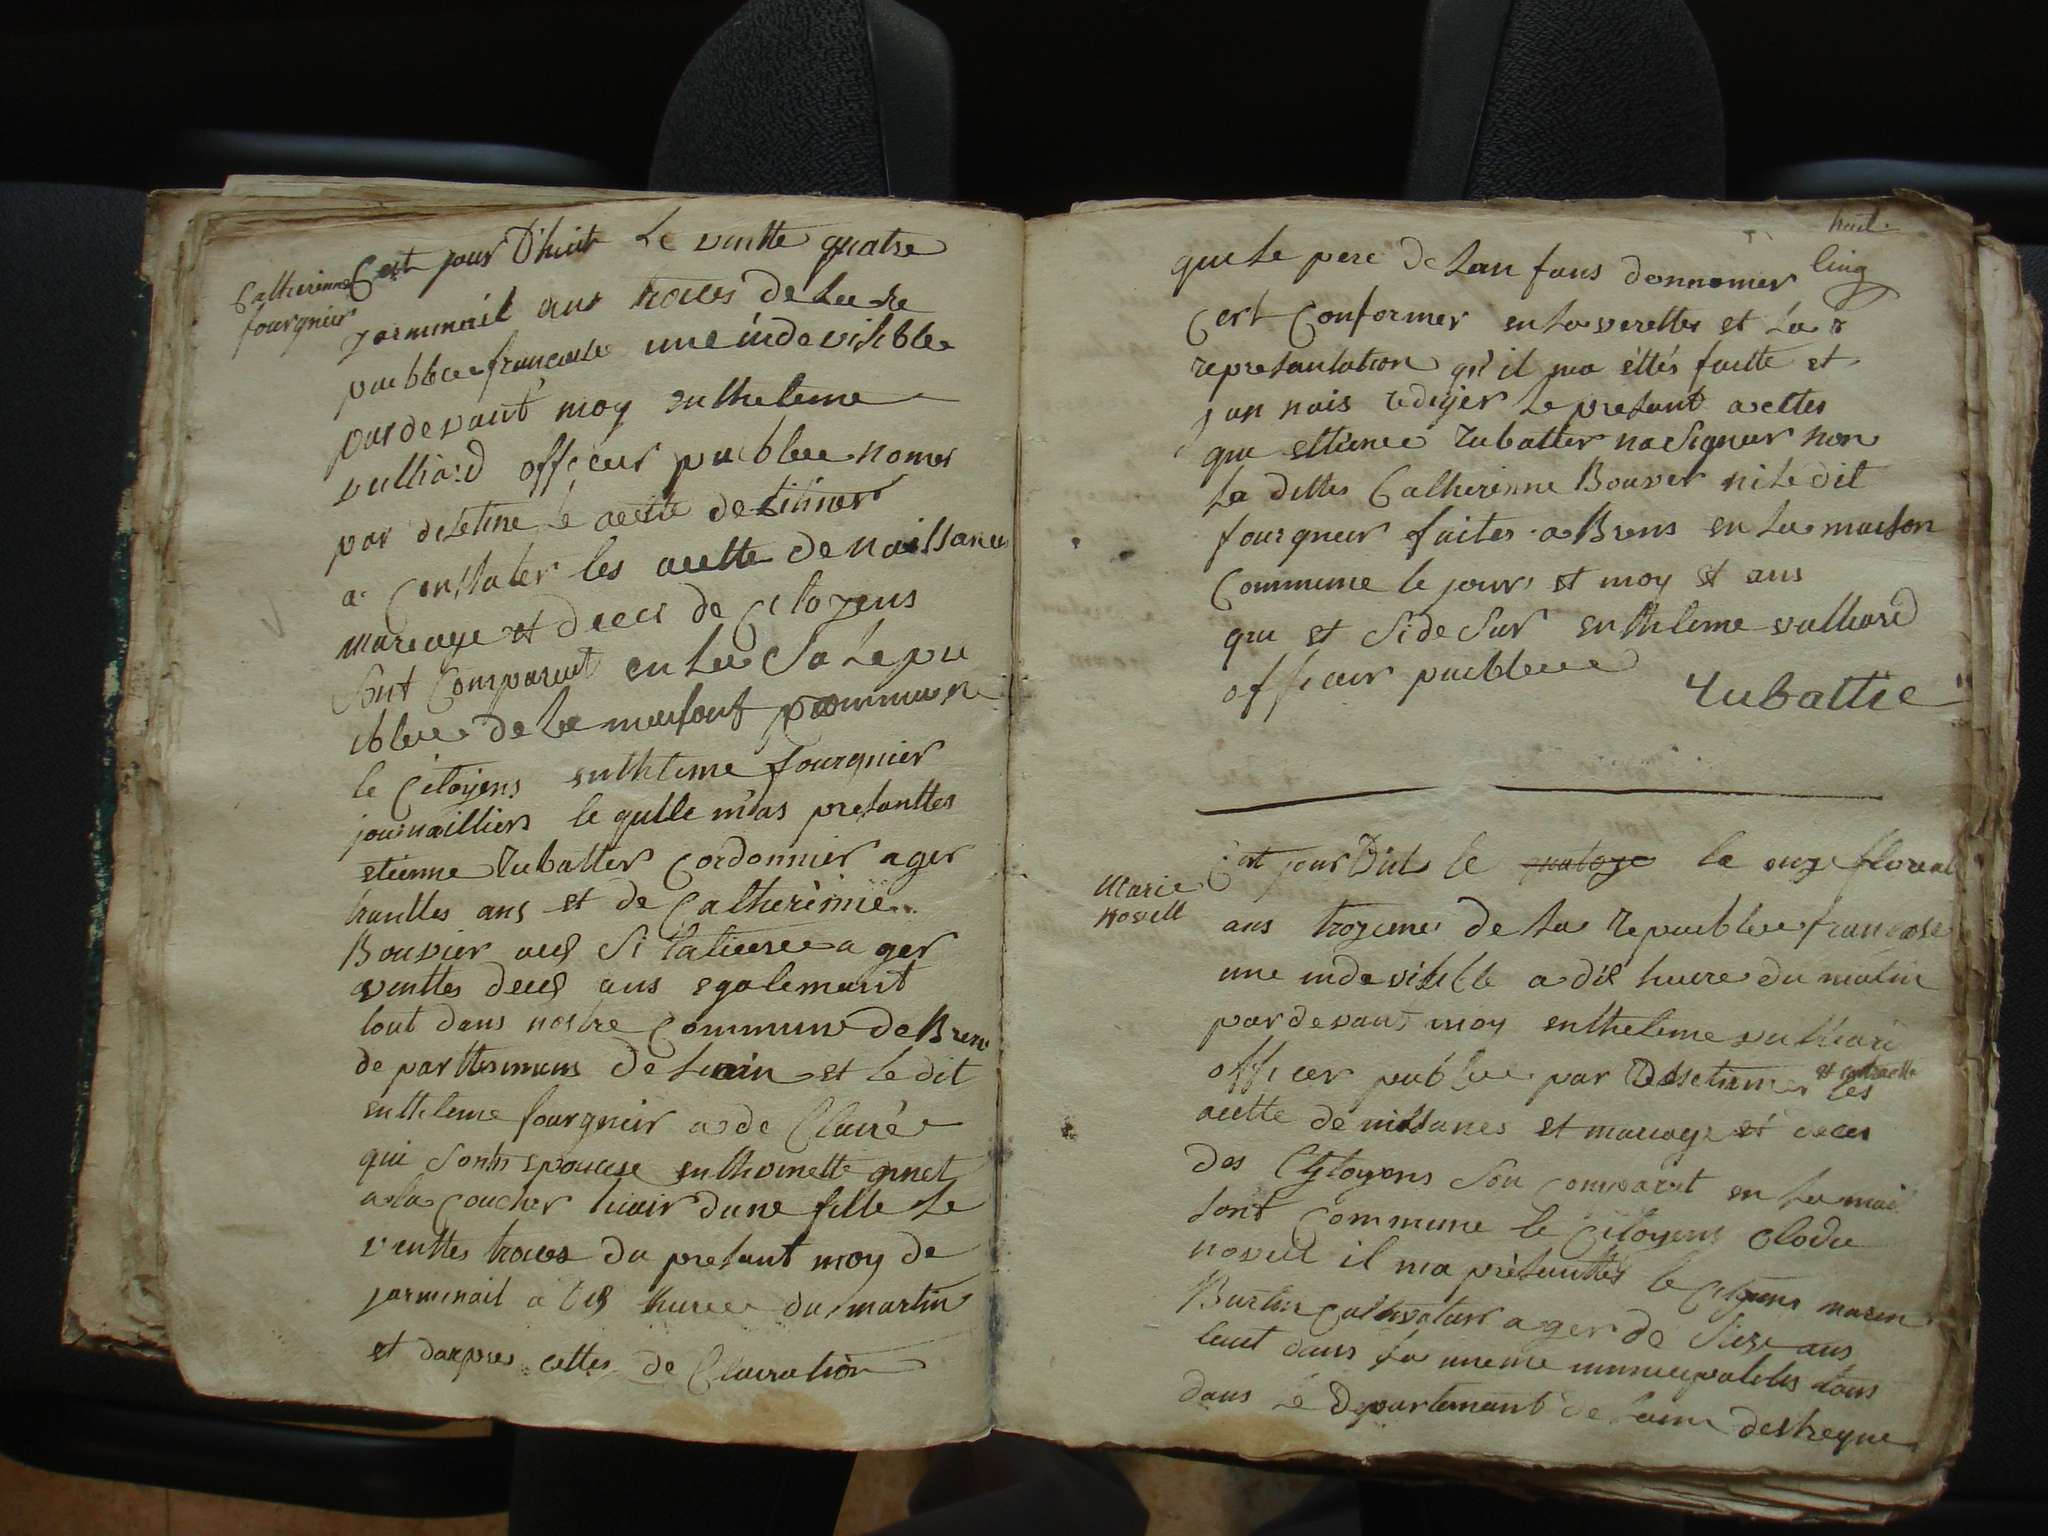 Catherinne
fourgnier
Cest jour D'huit Le vintte quatre
jarminail ans troies de La re
puebblee francaisse une indevisibblee
pardevant moy enthelme
vulliard officier puebblee nomer
par deletine le acitte destiner
a Constater les acitte de naissance
mariage et deces de Citoyens
sont Comparuet en La Sale pu
ibblee de La maisont commune
le Citoyens enthleme fourgnier
journailliers le qulle m'as presanttes
etienne Rubatter Cordonnier ager
tranttes ans et de Catherinne
Bouvier aus si ager
vinttes deus ans egalemant
tout dans nostre Commune de Bren
de parttemens De Lain et le dit
enthleme fourgnier a de Claire
qui sont epouese enthoinette
a la Coucher hiair dune fille Le
vinttes troies du presant moy de
jarminail a sis huree du martin
et darpres cettes de Claration
huit
Cinq
que Le pere de Lan fans donnomer
Cest Conformer en La verettes et La r
represantation qu'il ma ettes faitte et
j an nais rediger Le presant acttes
que ettienne Rubatter na Signer non
La dittes Catherinne Bouver ni Le dit
fourgneur faites a Brens en La maison
Commune le jour et moy et ans
que et Si de Sur enthleme vulliard
officier puebblee
Rubattie
Marie
Novell
Cest jour Duit le quatoze le onze floreal
ans trozieme de La Repuebblee francaise
une indevisible a dis heure du matin
par devant moy enthelme vulliard
officier pubblee par et contraette les
acitte de nissances et mariage et deces
des Citoyens Son comparet en La mai
sont Commune le Citoyens Clodu
novell il ma presanttes le Citoyens
Burtin Cultivateur ager de Sieze ans
tout dans La mueme municipalites tous
dans Le Departemant de Lain